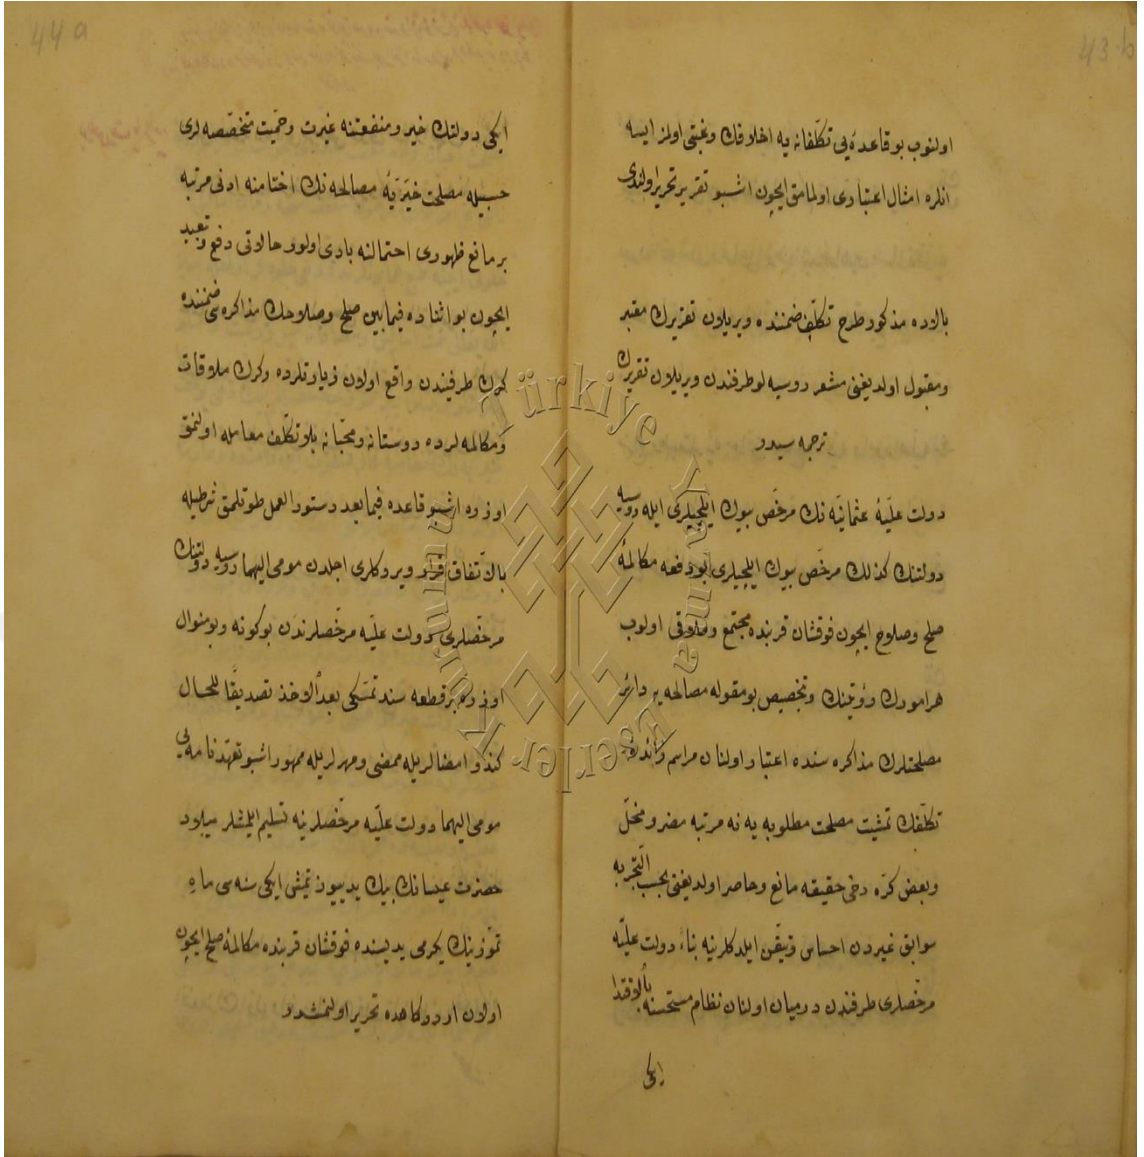 43 b
اولنوب بو قاعدهٔ بى تكلّفانه يه اخلافك رغبتى اولمز ايسه
انلره امثال اعتبارى اولمامق ايچون اشبو تقرير تحرير اولندى
بالاده مذكور طرح تكلّف ضمننده ويريلان تقريرك مقبر
ومقبول اولديغنى مشعر روسيه لو طرفندن ويريلان تقريرك
ترجمه سيدر
دولت عليّهٔ عثمانيّه نك مرخّص بيوك ايلچيلرى ايله روسيه
دولتنك كذلك مرخّص بيوك ايلچيلرى بو دفعه مكالمهٔ
صلح وصلاح ايچون فوقشان قربنده مجتمع وملاقى اولوب
هر امورك ورؤيتنك وتخصيص بو مقوله مصالحه يه دائر
مصلحتلرك مذاكره سنده اعتبار اولنان مراسم زائدهٔ
تكلّفك تمشيت مصلحت مطلوبه يه نه مرتبه مضر ومخلّ
وبعض كرّه دخى حقيقه مانع وحاصر اولديغنى بحسب التجربه
سوابق غيردن احساس وتيقّن ايلدكلرينه بناءً دولت عليّه
مرخّصلرى طرفندن درميان اولنان نظام مستحسنه بالاتقدا
ايكى
44 a
ايكى دولتك خير ومنفعتنه غيرت وحميّت متخصّصه لرى
حسبيله مصلحت خيريّهٔ مصالحه نك اختامنه ادنى مرتبه
بر مانع ظهورى احتمالنه بادى اولور حالاتى دفع وتبعيد
ايچون بو اثناده فيمابين صلح وصلاحك مذاكره سى ضمننده
كرك طرفيندن واقع اولان زيارتلرده وكرك ملاقات
ومكالمه لرده دوستانه ومحبّانه بلا تكلّف معامله اولنمق
اوزره اشبو قاعده فيما بعد دستور العمل طوتلمق شرطيله
بالاتّفاق قرار ويردكلرى اجلدن مومى اليهما روسيه دولتنك
مرخّصلرى دولت عليّه مرخّصلرندن بو كونه وبو منوال
اوزره بر قطعه سند تمسّكى بعد الاخذ تصديقًا للحال
كندو امضالريله ممضى ومهرلريله ممهور اشبو تعهّدنامه يى
مومى اليهما دولت عليّه مرخّصلرينه تسليم ايلمشلر ميلاد
حضرت عيسانك بيك يديوز يتمش ايكى سنه سى ماه
تمّوزينك يكرمى يديسنده فوقشان قربنده مكالمهٔ صلح ايچون
اولان اردوكاهده تحرير اولنمشدر
Türkiye Yazma Eserler Kurumu